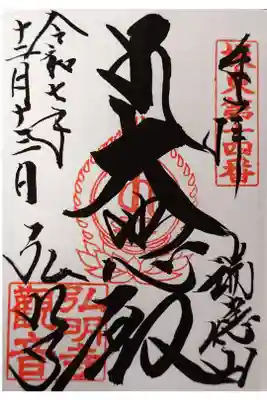 奉拝
坂東第十四番
瑞應山
大悲殿
令和七年
十二月
弘明寺
弘明寺
觀音